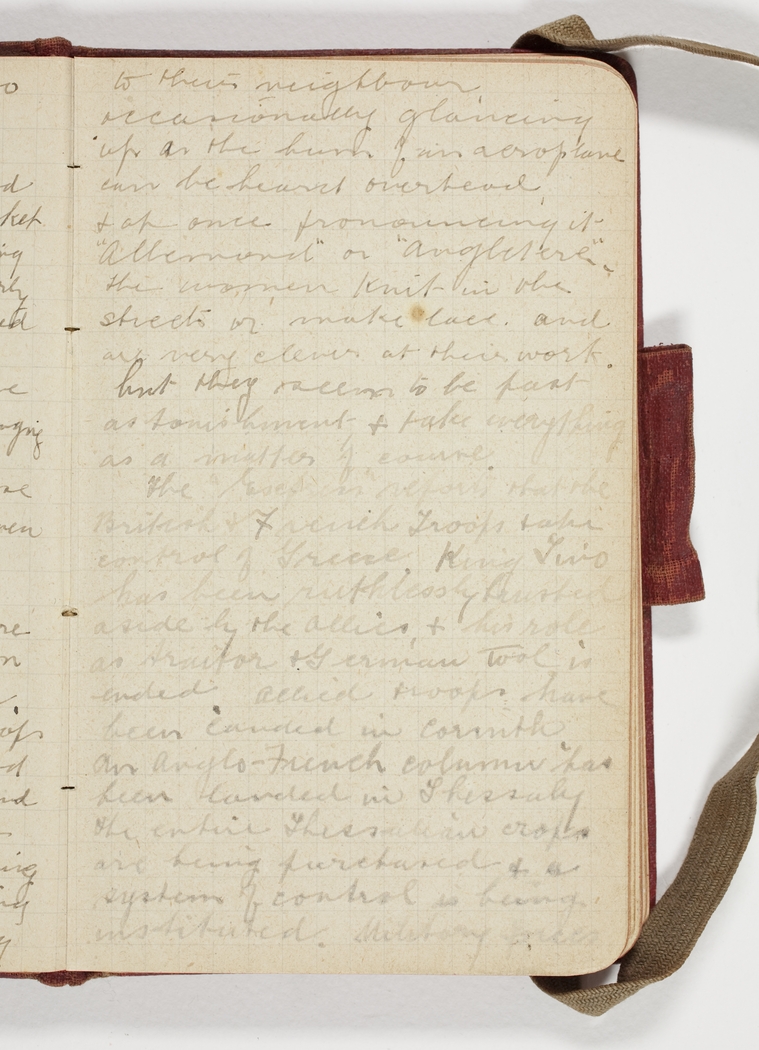 to their neighbour
occasionally glancing
up as the hum of an aeroplane
can be heard overhead
& at once pronouncing it
"Allemand" or "Angleterre".
the women knit in the
streets or make lace. and
are very clever at their work.
but they seem to be past
astonishment & take everything
as a matter of course
the " " reports that the
British & French Troops take
control of Greece. King Tino
has been ruthlessly thrusted
aside by the Allies, & his role
as traitor & German Tool is
ended Allied troops have
been landed in Corinth
an Anglo-French column has
been landed in Thessaly
the entire Thessalian crops
are being purchased & a
system of control is being
instituted. Military